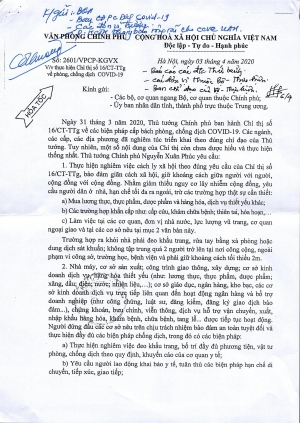 VĂN PHÒNG CHÍNH PHỦ
CỘNG HOÀ XÃ HỘI CHỦ NGHĨA VIỆT NAM
Độc lập - Tự do - Hạnh phúc
Số: 2601/VPCP-KGVX
Hà Nội, ngày 03 tháng 4 năm 2020
V/v thực hiện Chỉ thị số 16/CT-TTg
về phòng, chống dịch COVID-19
HỎA TỐC
Kính gửi:
- Các bộ, cơ quan ngang Bộ, cơ quan thuộc Chính phủ;
- Ủy ban nhân dân tỉnh, thành phố trực thuộc Trung ương.
Ngày 31 tháng 3 năm 2020, Thủ tướng Chính phủ ban hành Chỉ thị số
16/CT-TTg về các biện pháp cấp bách phòng, chống dịch COVID-19. Các ngành,
các cấp, các địa phương đã nghiêm túc triển khai theo đúng chỉ đạo của Thủ
tướng. Tuy nhiên, một số nội dung của Chỉ thị còn chưa được hiểu và thực hiện
thống nhất. Thủ tướng Chính phủ Nguyễn Xuân Phúc yêu cầu:
1. Thực hiện nghiêm việc cách ly xã hội theo đúng yêu cầu của Chỉ thị số
16/CT-TTg, bảo đảm giãn cách xã hội, giữ khoảng cách giữa người với người,
cộng đồng với cộng đồng. Nhằm giảm thiểu nguy cơ lây nhiễm cộng đồng, yêu
cầu người dân ở nhà, hạn chế tối đa ra ngoài, trừ các trường hợp thật sự cần thiết:
a) Mua lương thực, thực phẩm, dược phẩm và hàng hóa, dịch vụ thiết yếu khác;
b) Các trường hợp khẩn cấp như: cấp cứu, khám chữa bệnh; thiên tai, hỏa hoạn,...
c) Làm việc tại các cơ quan, đơn vị nhà nước, lực lượng vũ trang, cơ quan
ngoại giao và tại các cơ sở nêu tại mục 2 văn bản này.
Trường hợp ra khỏi nhà phải đeo khẩu trang, rửa tay bằng xà phòng hoặc
dung dịch sát khuẩn; không tập trung quá 2 người trở lên tại nơi công cộng, ngoài
phạm vi công sở, trường học, bệnh viện và phải giữ khoảng cách tối thiểu 2m.
2. Nhà máy, cơ sở sản xuất; công trình giao thông, xây dựng; cơ sở kinh
doanh dịch vụ, hàng hóa thiết yếu (như: lương thực, thực phẩm, dược phẩm;
xăng, dầu; điện; nước; nhiên liệu,...); cơ sở giáo dục, ngân hàng, kho bạc, các cơ
sở kinh doanh dịch vụ trực tiếp liên quan đến hoạt động ngân hàng và bổ trợ
doanh nghiệp (như công chứng, luật sư, đăng kiểm, đăng ký giao dịch bảo
đảm...), chứng khoán, bưu chính, viễn thông, dịch vụ hỗ trợ vận chuyển, xuất,
nhập khẩu hàng hóa, khám bệnh, chữa bệnh, tang lễ... được tiếp tục hoạt động.
Người đứng đầu các cơ sở nêu trên chịu trách nhiệm bảo đảm an toàn tuyệt đối và thực
hiện đầy đủ các biện pháp chống dịch, trong đó có các biện pháp:
a) Thực hiện nghiêm việc đeo khẩu trang, bố trí đầy đủ phương tiện, vật tư
phòng, chống dịch theo quy định, khuyến cáo của cơ quan y tế;
b) Yêu cầu người lao động khai báo y tế, tuân thủ các biện pháp hạn chế di
chuyển, tiếp xúc, giao tiếp;